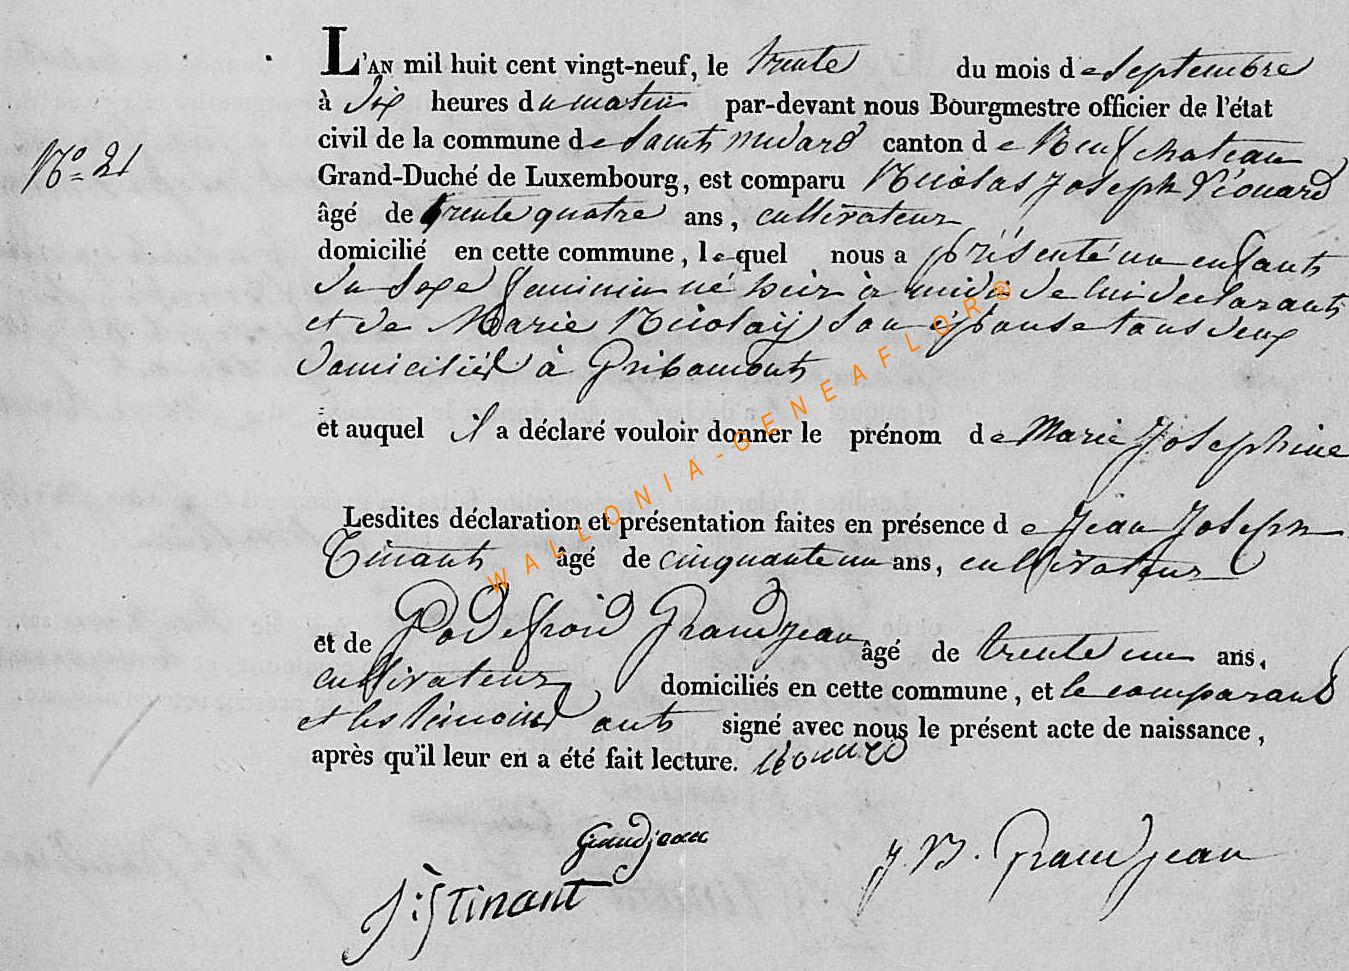 L'AN mil huit cent vingt-neuf, le trente du mois de Septembre
à dix heures du matin par-devant nous Bourgmestre officier de l'état
civil de la commune de Saint Médard canton de Neufchateau
N.o 21
Grand-Duché de Luxembourg, est comparu Nicolas Joseph Léonard
âgé de trente quatre ans, cultivateur
domicilié en cette commune, lequel nous a présenté un enfant
du Sexe feminin né hier à midi de lui declarant
et de Marie Nicolay son épouse tous deux
domiciliés à Gribomont
et auquel il a déclaré vouloir donner le prénom de Marie Josephine
Lesdites déclaration et présentation faites en présence de Jean Joseph
Tinant âgé de cinquante un ans, cultivateur
et de Godefroid Grandjean âgé de trente un ans,
cultivateur, domiciliés en cette commune, et le comparant
et les témoins ont signé avec nous le présent acte de naissance,
après qu'il leur en a été fait lecture. Léonard
Grandjean
J: J Tinant
J. B. Grandjean
WALLONIA-GENEAFLOR®